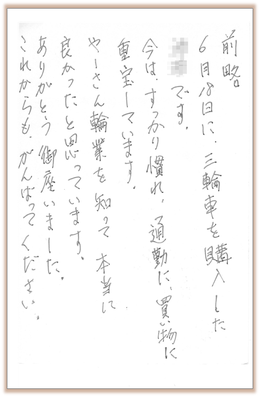 前略
6月18日に、三輪車を購入した
です。
今は、すっかり慣れ、通勤に、買い物に
重宝しています。
やーさん輪業を知って本当に
良かったと思っています。
ありがとう御座いました。
これからも、がんばってください。